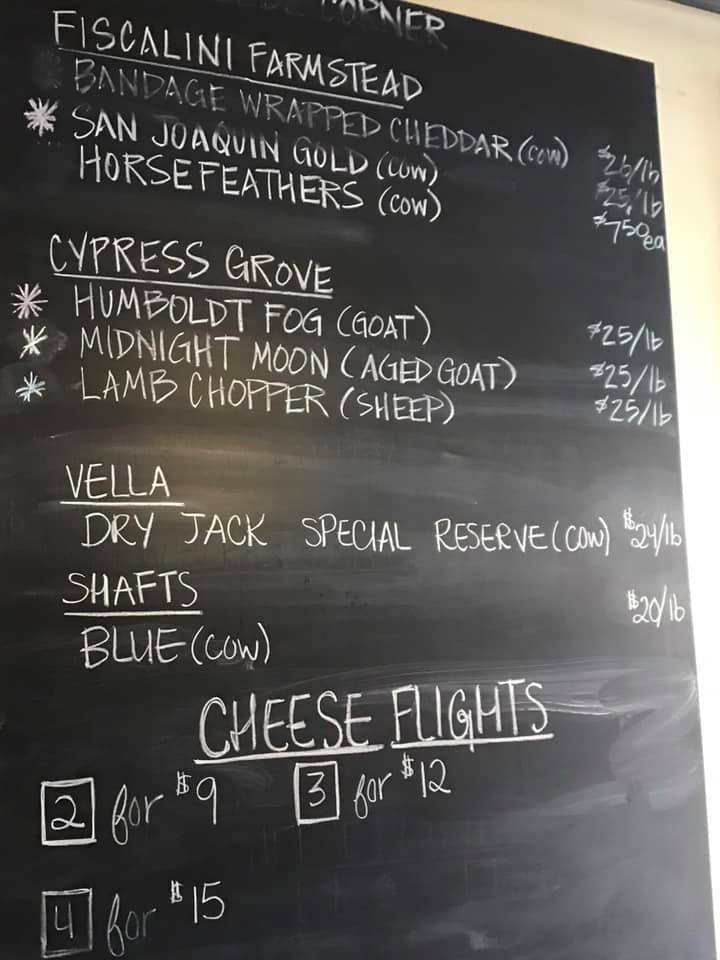 CORNER
FISCALINI FARMSTEAD
BANDAGE WRAPPED CHEDDAR (COW) $26/lb
* SAN JOAQUIN GOLD (COW) $25/lb
HORSEFEATHERS (COW) $750 ea
CYPRESS GROVE
* HUMBOLDT FOG (GOAT) $25/lb
* MIDNIGHT MOON (AGED GOAT) $25/lb
* LAMB CHOPPER (SHEEP) $25/lb
VELLA
DRY JACK SPECIAL RESERVE (COW) $24/lb
SHAFTS
BLUE (COW) $20/lb
CHEESE FLIGHTS
2 for $9 3 for $12
4 for $15